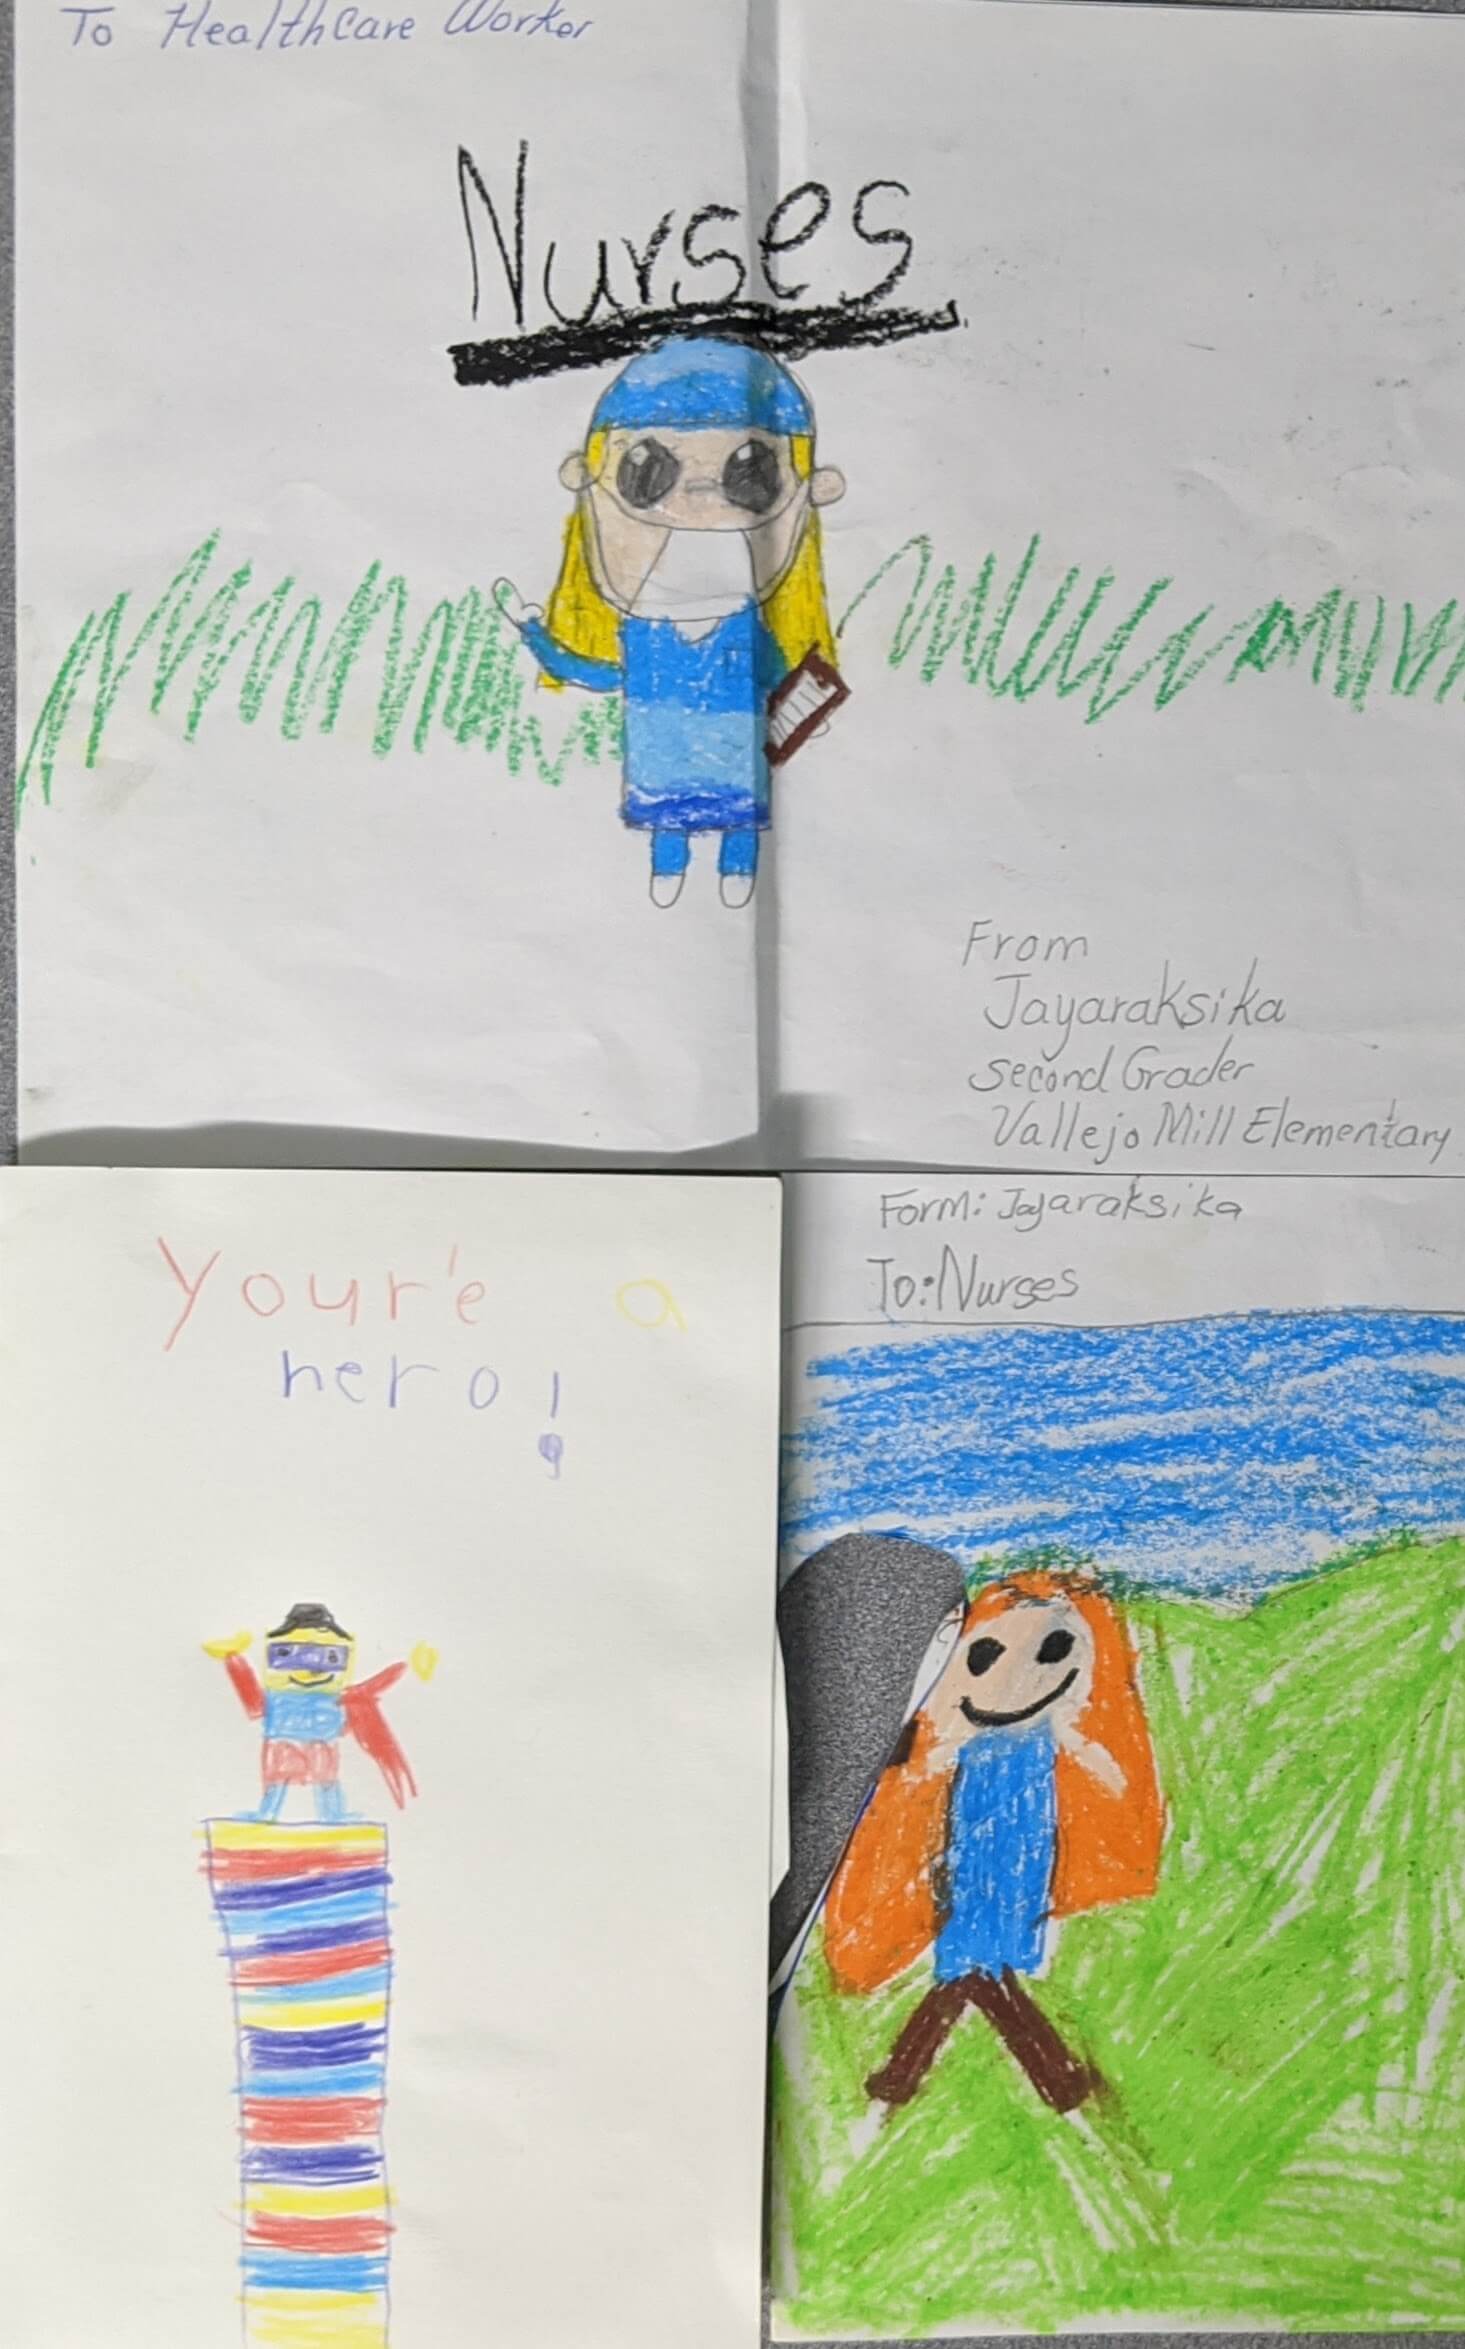 To Healthcare Worker
Nurses
From
Jayaraksika
Second Grader
Vallejo Mill Elementary
Your'e a
hero!
Form: Jayaraksika
To: Nurses